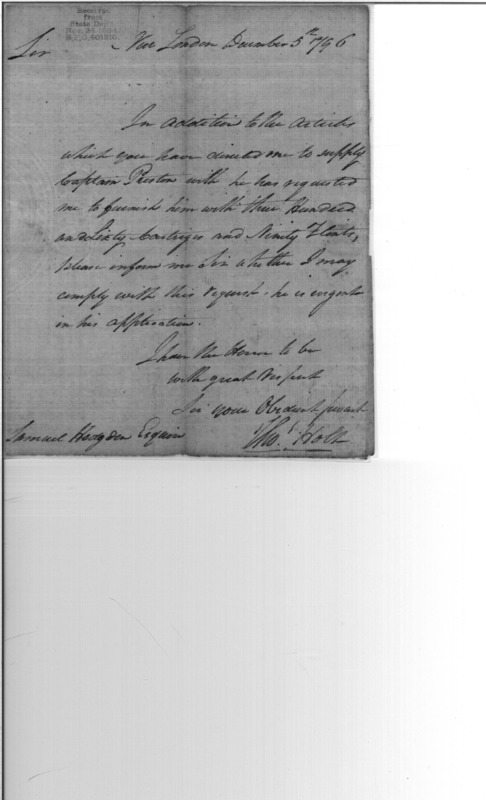 Received
from
State Dept.
Sir New London December 5th 1796
In addition to the articles
which you have directed me to supply
Captain Preston with he has requested
me to furnish him with three Hundred
and Sixty Cartriges and Ninety Flints,
please inform me Sir whether I may
comply with this request, he is urgent
in his application.
I have the Honor to be
with great respect
Sir your Obedient servant
Samuel Hodgdon Esquire Tho.s Holt